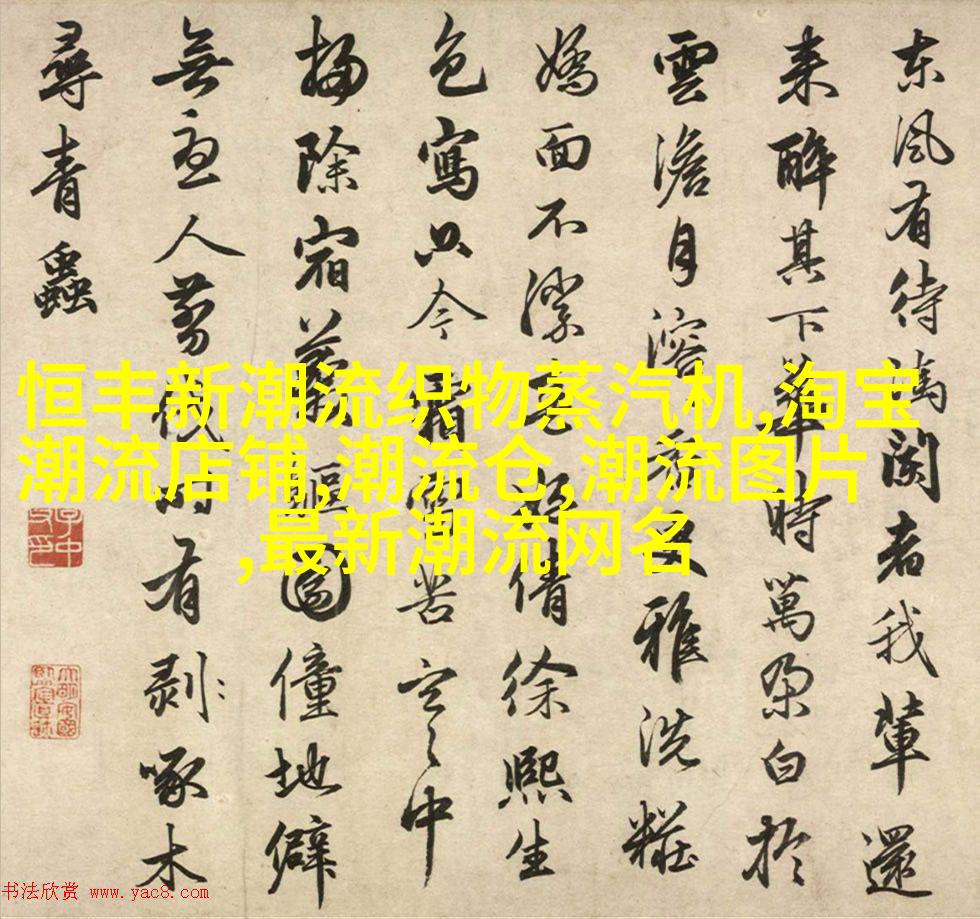 东風有待滿開者我輩還
来醉其下華時萬朶白於
雲澹月溶又雅洗糚
嬌面不潔倩徐熙生
色寫只今霜苦中
掃除宿驅園僮地僻
無人剪伐時有剥啄木
尋青蟲
恒丰新潮流织物蒸汽机,淘宝
潮流店铺,潮流仓,潮流图片
,最新潮流网名
书法欣赏 www.yac8.com